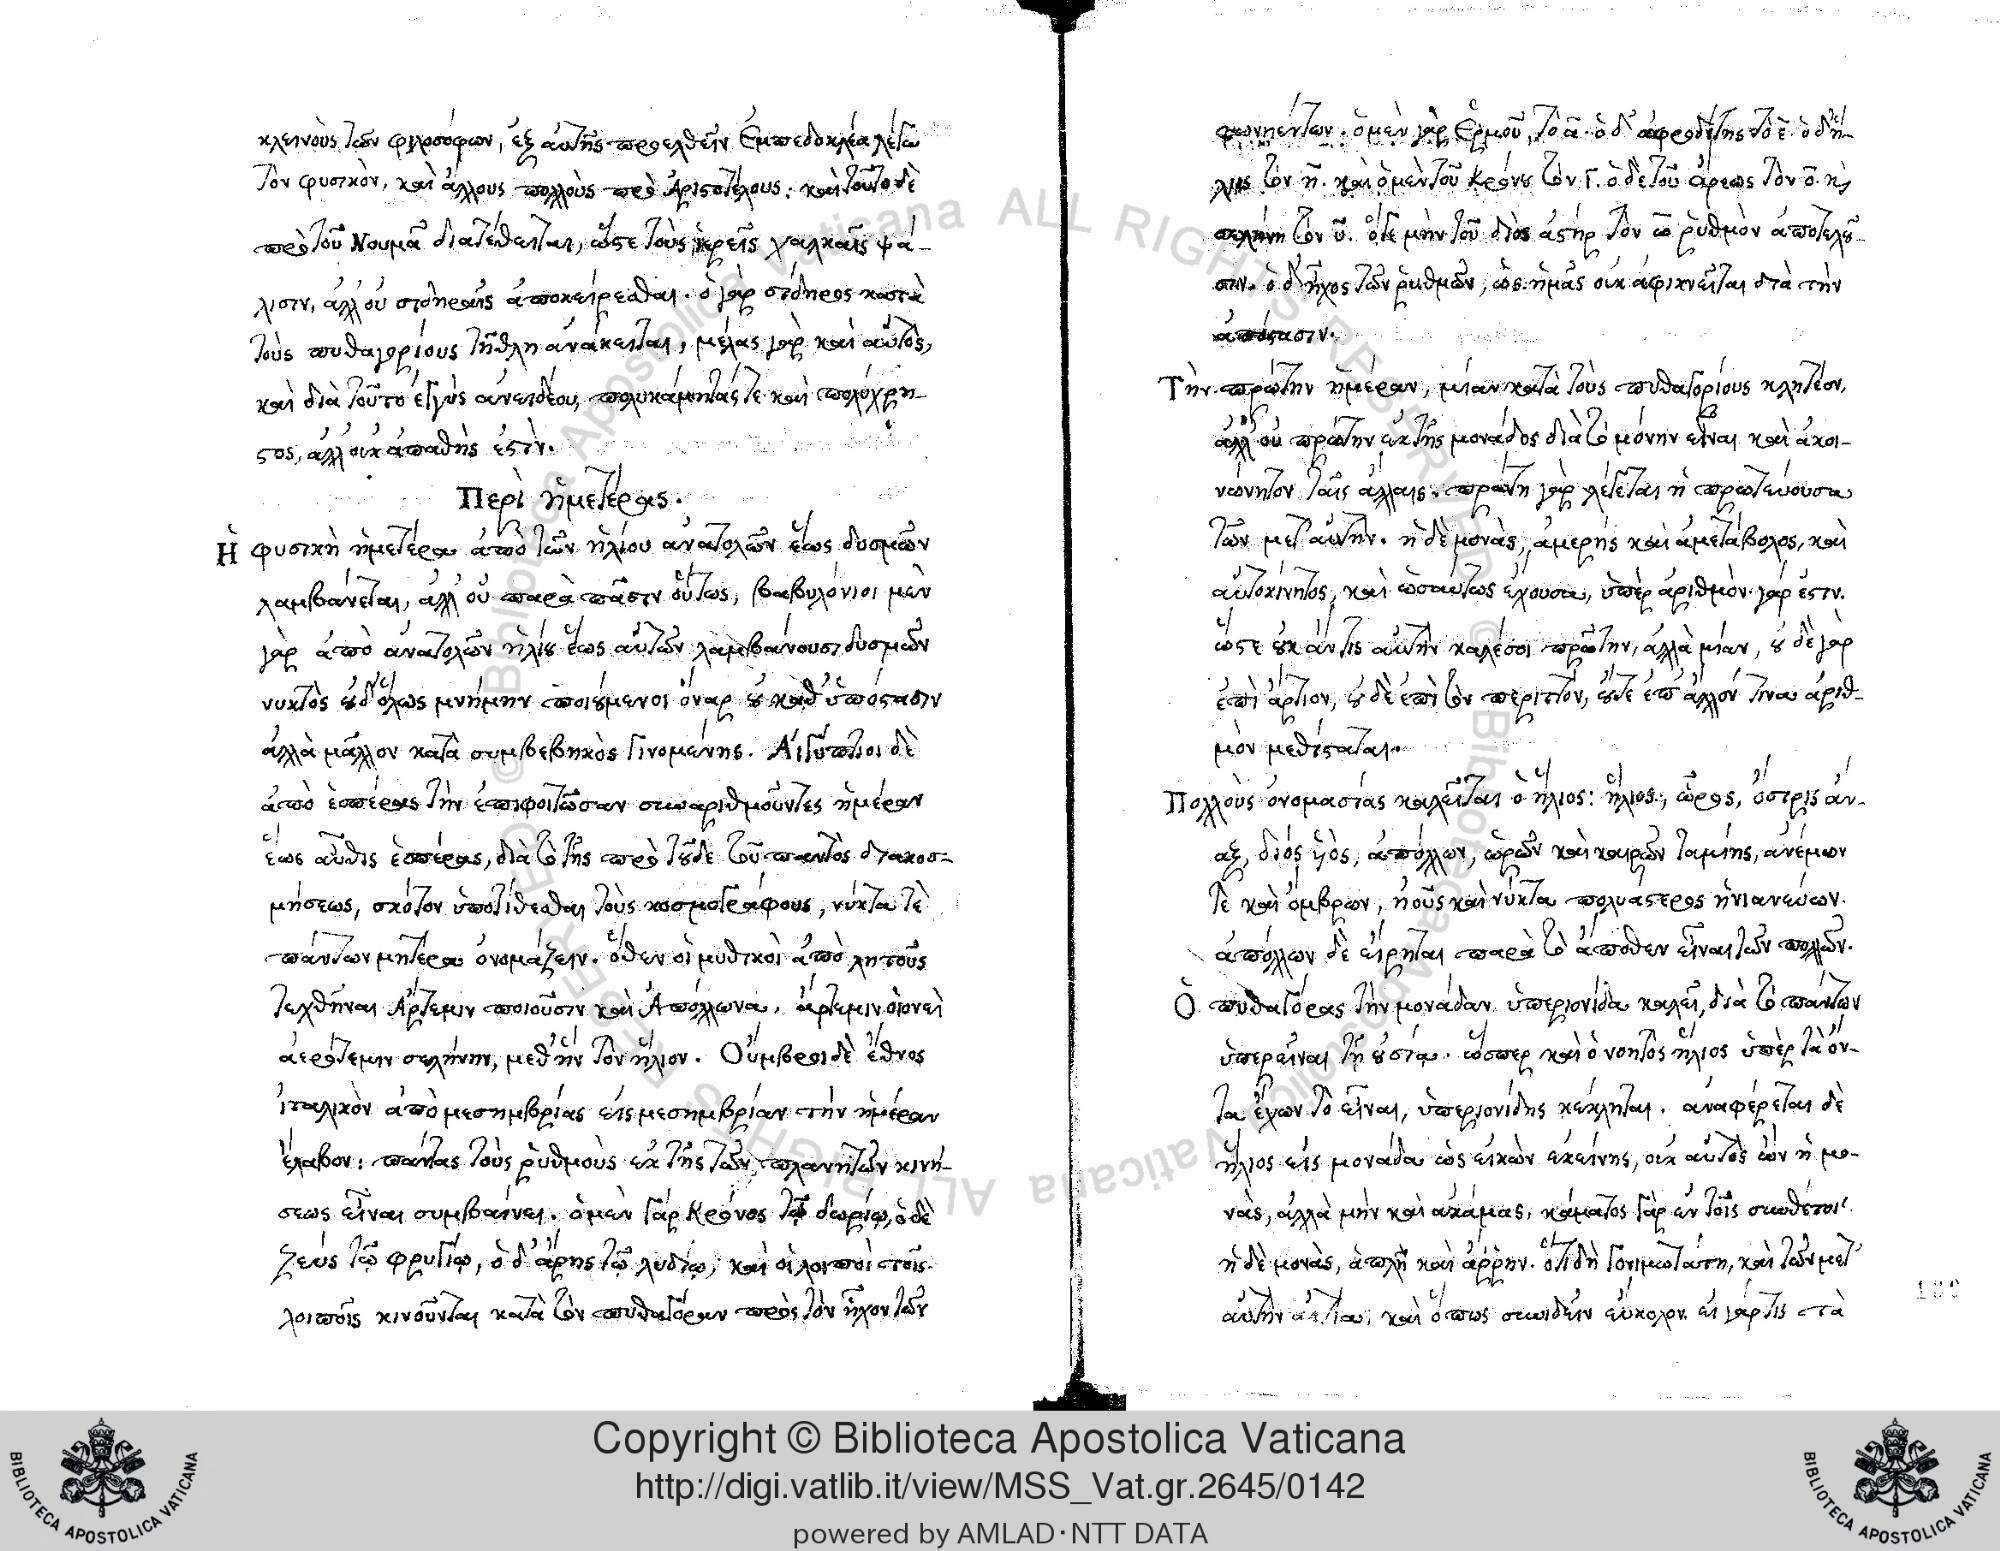 κλεινοὺς τῶν φιλοσόφων, ἐξ αὐτῆς προελθεῖν Ἐμπεδοκλέα λέγω
τὸν φυσικὸν, καὶ ἄλλους πολλοὺς πρὸ Ἀριστοτέλους. καὶ τοῦτο δὲ
πρὸ τοῦ Νουμᾶ διατέθειται, ὥστε τοὺς ἱερεῖς χαλκαῖς ψα-
λίσιν, ἀλλ' οὐ σιδηραῖς ἀποκείρεσθαι. ὁ γὰρ σίδηρος κατὰ
τοὺς πυθαγορίους τῇ ὕλῃ ἀνάκειται, μέλας γὰρ καὶ αὐτὸς,
καὶ διὰ τοῦτο ἐγγὺς ἀνειδέου, πολυκάματός τε καὶ πολύχρη-
στος, ἀλλ' οὐκ ἀπαθής ἐστὶν.
Περὶ ἡμετέρας.
Ἡ φυσικὴ ἡμετέρα ἀπὸ τῶν ἡλίου ἀνατολῶν ἕως δυσμῶν
λαμβάνεται, ἀλλ' οὐ παρὰ πᾶσιν οὕτως, βαβυλόνιοι μὲν
γὰρ ἀπὸ ἀνατολῶν ἡλίου ἕως αὐτῶν λαμβάνουσι δυσμῶν
νυκτὸς οὐδ' ὅλως μνήμην ποιούμενοι ὄναρ οὐ καθ' ὑπόστασιν
ἀλλὰ μᾶλλον κατὰ συμβεβηκὸς γινομένης. Αἰγύπτιοι δὲ
ἀπὸ ἑσπέρας τὴν ἐπιφοιτῶσαν συναριθμοῦντες ἡμέραν
ἕως αὖθις ἑσπέρας, διὰ τὸ τῆς πρὸ τοῦδε τοῦ παντὸς διακοσ-
μήσεως, σκότον ὑποτίθεσθαι τοὺς κοσμογράφους, νύκτα τὲ
πάντων μητέρα ὀνομάζειν. ὅθεν οἱ μυθικοὶ ἀπὸ λητοῦς
τεχθῆναι Ἄρτεμιν ποιοῦσιν καὶ Ἀπόλλωνα. ἄρτεμιν οἱονεὶ
ἀερότεμιν σελήνην, μεθ' ἣν τὸν ἥλιον. Οὔμβροι δὲ ἔθνος
ἰταλικὸν ἀπὸ μεσημβρίας εἰς μεσημβρίαν τὴν ἡμέραν
ἔλαβον: πάντας τοὺς ῥυθμοὺς ἐκ τῆς τῶν πλανητῶν κινή-
σεως εἶναι συμβαίνει. ὁ μὲν γὰρ Κρόνος τῷ δωρίῳ, ὁ δὲ
ζεὺς τῷ φρυγίῳ, ὁ δ' ἄρης τῷ λυδίῳ, καὶ οἱ λοιποὶ τοῖς
λοιποῖς κινοῦνται κατὰ τὸν πυθαγόραν πρὸς τὸν ἦχον τῶν
φωνηέντων. ὁ μὲν γὰρ Ἑρμοῦ, τὸ α. ὁ δ' ἀφροδίτης τὸ ε. ὁ δ' ἥ-
λιος τὸν η. καὶ ὁ μὲν τοῦ Κρόνου τὸν ι. ὁ δὲ τοῦ ἄρεως τὸν ο. καὶ
σελήνη τὸν υ. ὅ γε μὴν τοῦ διὸς ἀστὴρ τὸν ω ῥυθμὸν ἀποτελοῦ-
σιν. ὁ δ' ἦχος τῶν ῥυθμῶν, ὡς ἡμᾶς οὐκ ἀφικνεῖται διὰ τὴν
ἀπόστασιν.
Τὴν πρώτην ἡμέραν, μίαν κατὰ τοὺς πυθαγορίους κλητέον,
ἀλλ' οὐ πρώτην ἐκ τῆς μονάδος διὰ τὸ μόνην εἶναι καὶ ἀκοι-
νώνητον ταῖς ἄλλαις. πρώτη γὰρ λέγεται ἡ πρωτεύουσα
τῶν μετ' αὐτὴν. ἡ δὲ μονὰς, ἀμερής καὶ ἀμετάβολος, καὶ
αὐτοκίνητος, καὶ ὡσαύτως ἔχουσα, ὑπὲρ ἀριθμὸν γάρ ἐστιν.
ὥστε οὐκ ἄν τις αὐτὴν καλέσοι πρώτην, ἀλλὰ μίαν, οὐδὲ γὰρ
ἐπὶ ἄρτιον, οὐδὲ ἐπὶ τὸν περιττὸν, οὔτε ἐπ' ἄλλόν τινα ἀριθ-
μὸν μεθίσταται.
Πολλοὺς ὀνομασίας καλεῖται ὁ ἥλιος: ἥλιος, ὧρος, ὄσιρις ἄν-
αξ, διός ὑὸς, ἀπόλλων, ὡρῶν καὶ καιρῶν ταμίης, ἀνέμων
τε καὶ ὄμβρων, ἠοῦς καὶ νύκτα πολυάστερος ἡνιανεύων.
ἀπόλλων δὲ εἴρηται παρὰ τὸ ἄποθεν εἶναι τῶν πολλῶν.
Ὁ πυθαγόρας τὴν μονάδαν ὑπεριονίδα καλεῖ, διὰ τὸ πάντων
ὑπερεῖναι τῇ οὐσίᾳ. ὥσπερ καὶ ὁ νοητὸς ἥλιος ὑπὲρ τὰ ὄν-
τα ἔχων τὸ εἶναι, ὑπεριονίδης κέκληται. ἀναφέρεται δὲ
ἥλιος εἰς μονάδα ὡς εἰκὼν ἐκείνης, οὐκ αὐτὸς ὢν ἡ μο-
νὰς, ἀλλὰ μὴν καὶ ἀκάμας, κάματος γὰρ ἐν τοῖς συνθέτοις
ἡ δὲ μονὰς, ἁπλῆ καὶ ἄρρην. ὅτι δὴ γονιμωτάτη, καὶ τῶν μετ'
αὐτὴν αἰτία, καὶ ὅπως συνιδεῖν εὔκολον. εἰ γάρ τις τὰ
Copyright © Biblioteca Apostolica Vaticana
http://digi.vatlib.it/view/MSS_Vat.gr.2645/0142
powered by AMLAD·NTT DATA
BIBLIOTECA APOSTOLICA VATICANA
BIBLIOTECA APOSTOLICA VATICANA